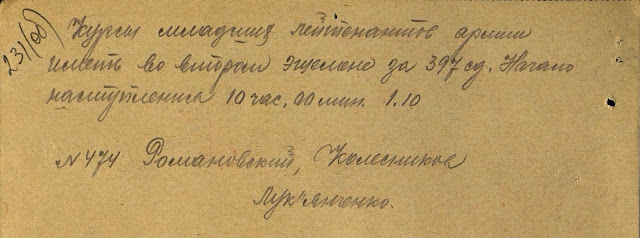 231(об)
Курсы младших лейтенантов армии
иметь во втором эшелоне за 397 сд. Начало
наступления 10 час. 00 мин. 1.10
N 474 Романовский, Колесников
Лукъянченко.